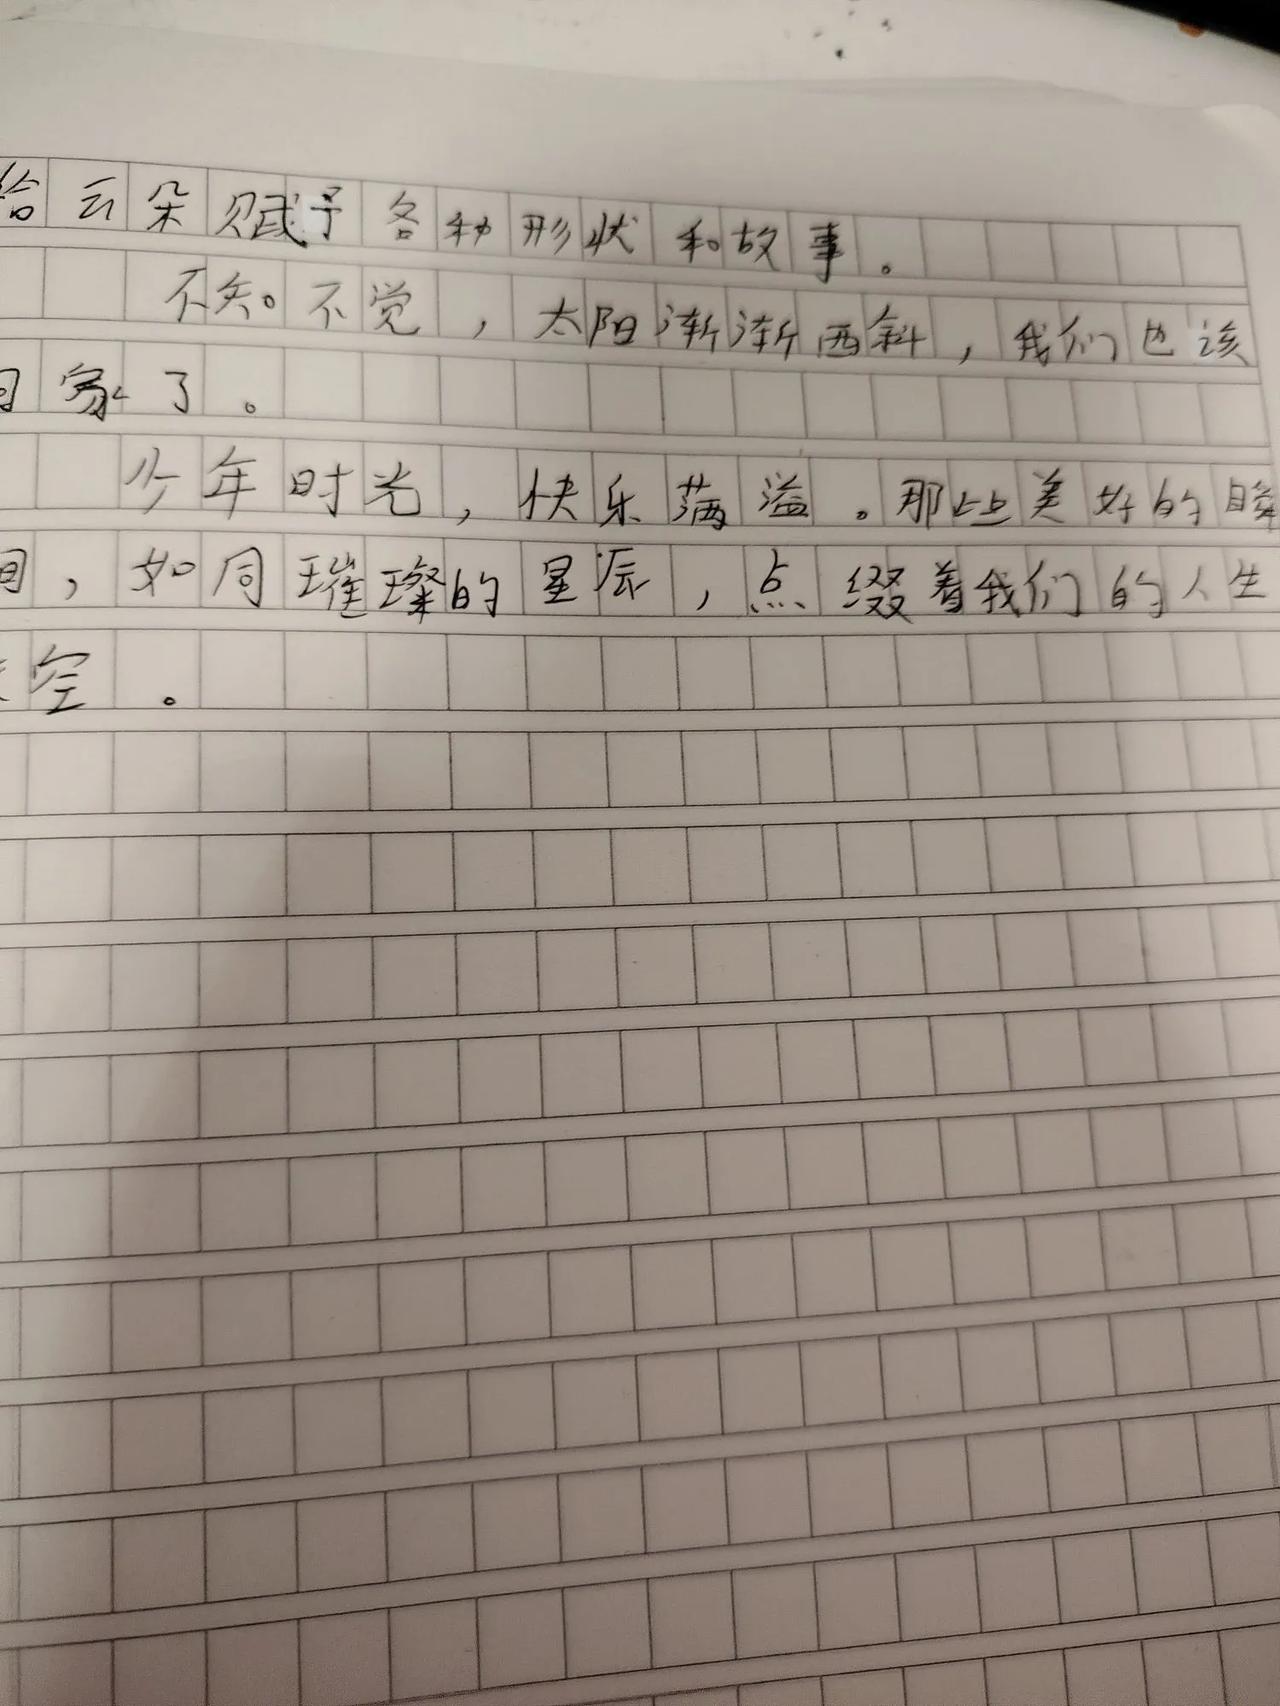 给云朵赋予各种形状和故事。
不知不觉，太阳渐渐西斜，我们也该
回家了。
少年时光，快乐满溢。那些美好的瞬
间，如同璀璨的星辰，点缀着我们的人生
天空。